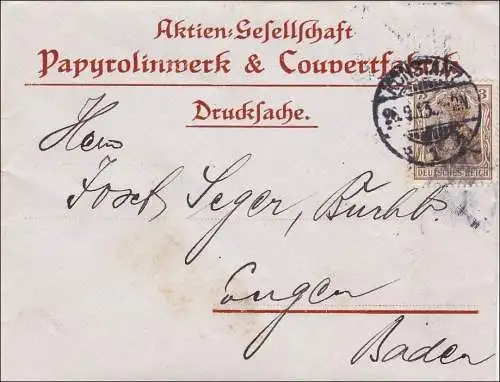 Aktien-Gesellschaft
Papyrolinwerk & Couvertfabrik
Drucksache.
KONSTANZ
3
DEUTSCHES REICH
Herrn
Josef Seger, Buchb.
Engen
Baden